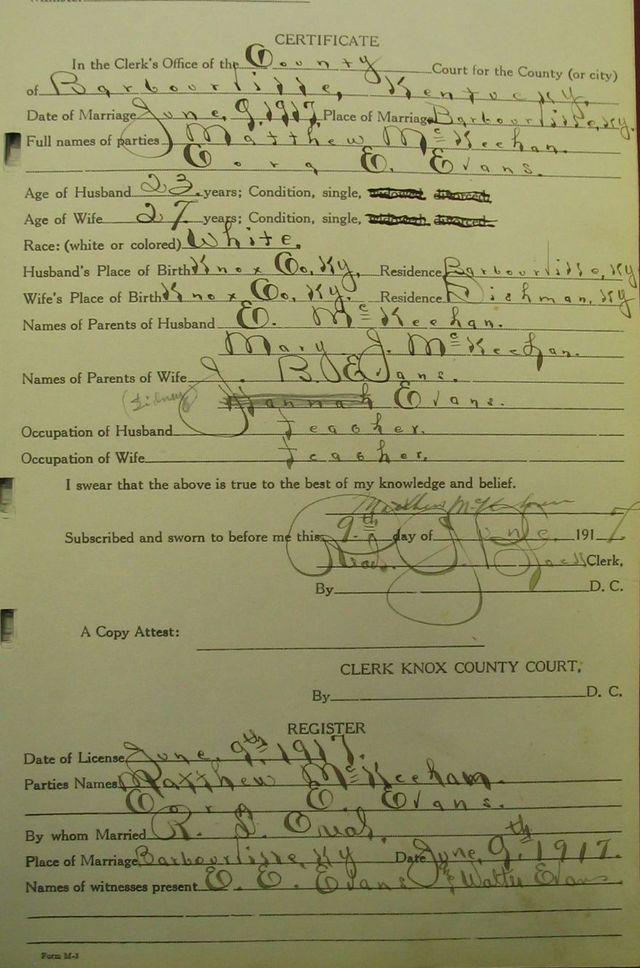 CERTIFICATE
In the Clerk's Office of the County Court for the County (or city)
of Barbourville, Kentucky,
Date of Marriage June, 9, 1917, Place of Marriage Barbourville, Ky.
Full names of parties Matthew McKeehan.
Cora E. Evans.
Age of Husband 23. years; Condition, single, widowed, divorced.
Age of Wife 27 years; Condition, single, widowed, divorced.
Race: (white or colored) White.
Husband's Place of Birth Knox Co, Ky, Residence Barbourville, Ky
Wife's Place of Birth Knox Co, Ky. Residence Dishman, Ky
Names of Parents of Husband E. McKeehan.
Mary J. McKeehan.
Names of Parents of Wife J. B. Evans.
(Sidney) Hannah Evans.
Occupation of Husband Teacher.
Occupation of Wife Teacher.
I swear that the above is true to the best of my knowledge and belief.
Matthew McKeehan
Subscribed and sworn to before me this 9th day of June, 1917
Clerk,
By D. C.
A Copy Attest:
CLERK KNOX COUNTY COURT,
By D. C.
REGISTER
Date of License June, 9th, 1917.
Parties Names Matthew McKeehan.
Cora E. Evans.
By whom Married R.
Place of Marriage Barbourville, Ky Date June, 9th, 1917.
Names of witnesses present E. E. Evans & Walter Evans
Form M-3